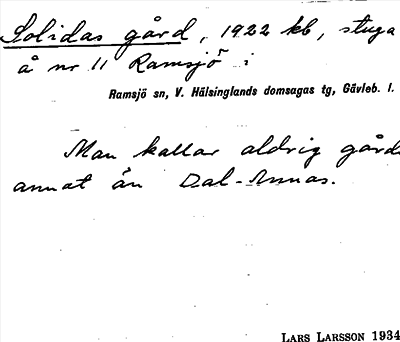 Solidas gård, 1922 kb, stuga
å nr 11 Ramsjö i
Ramsjö sn, V. Hälsinglands domsagas tg, Gävleb. l.
Man kallar aldrig gård
annat än Dal-Annas.
LARS LARSSON 1934